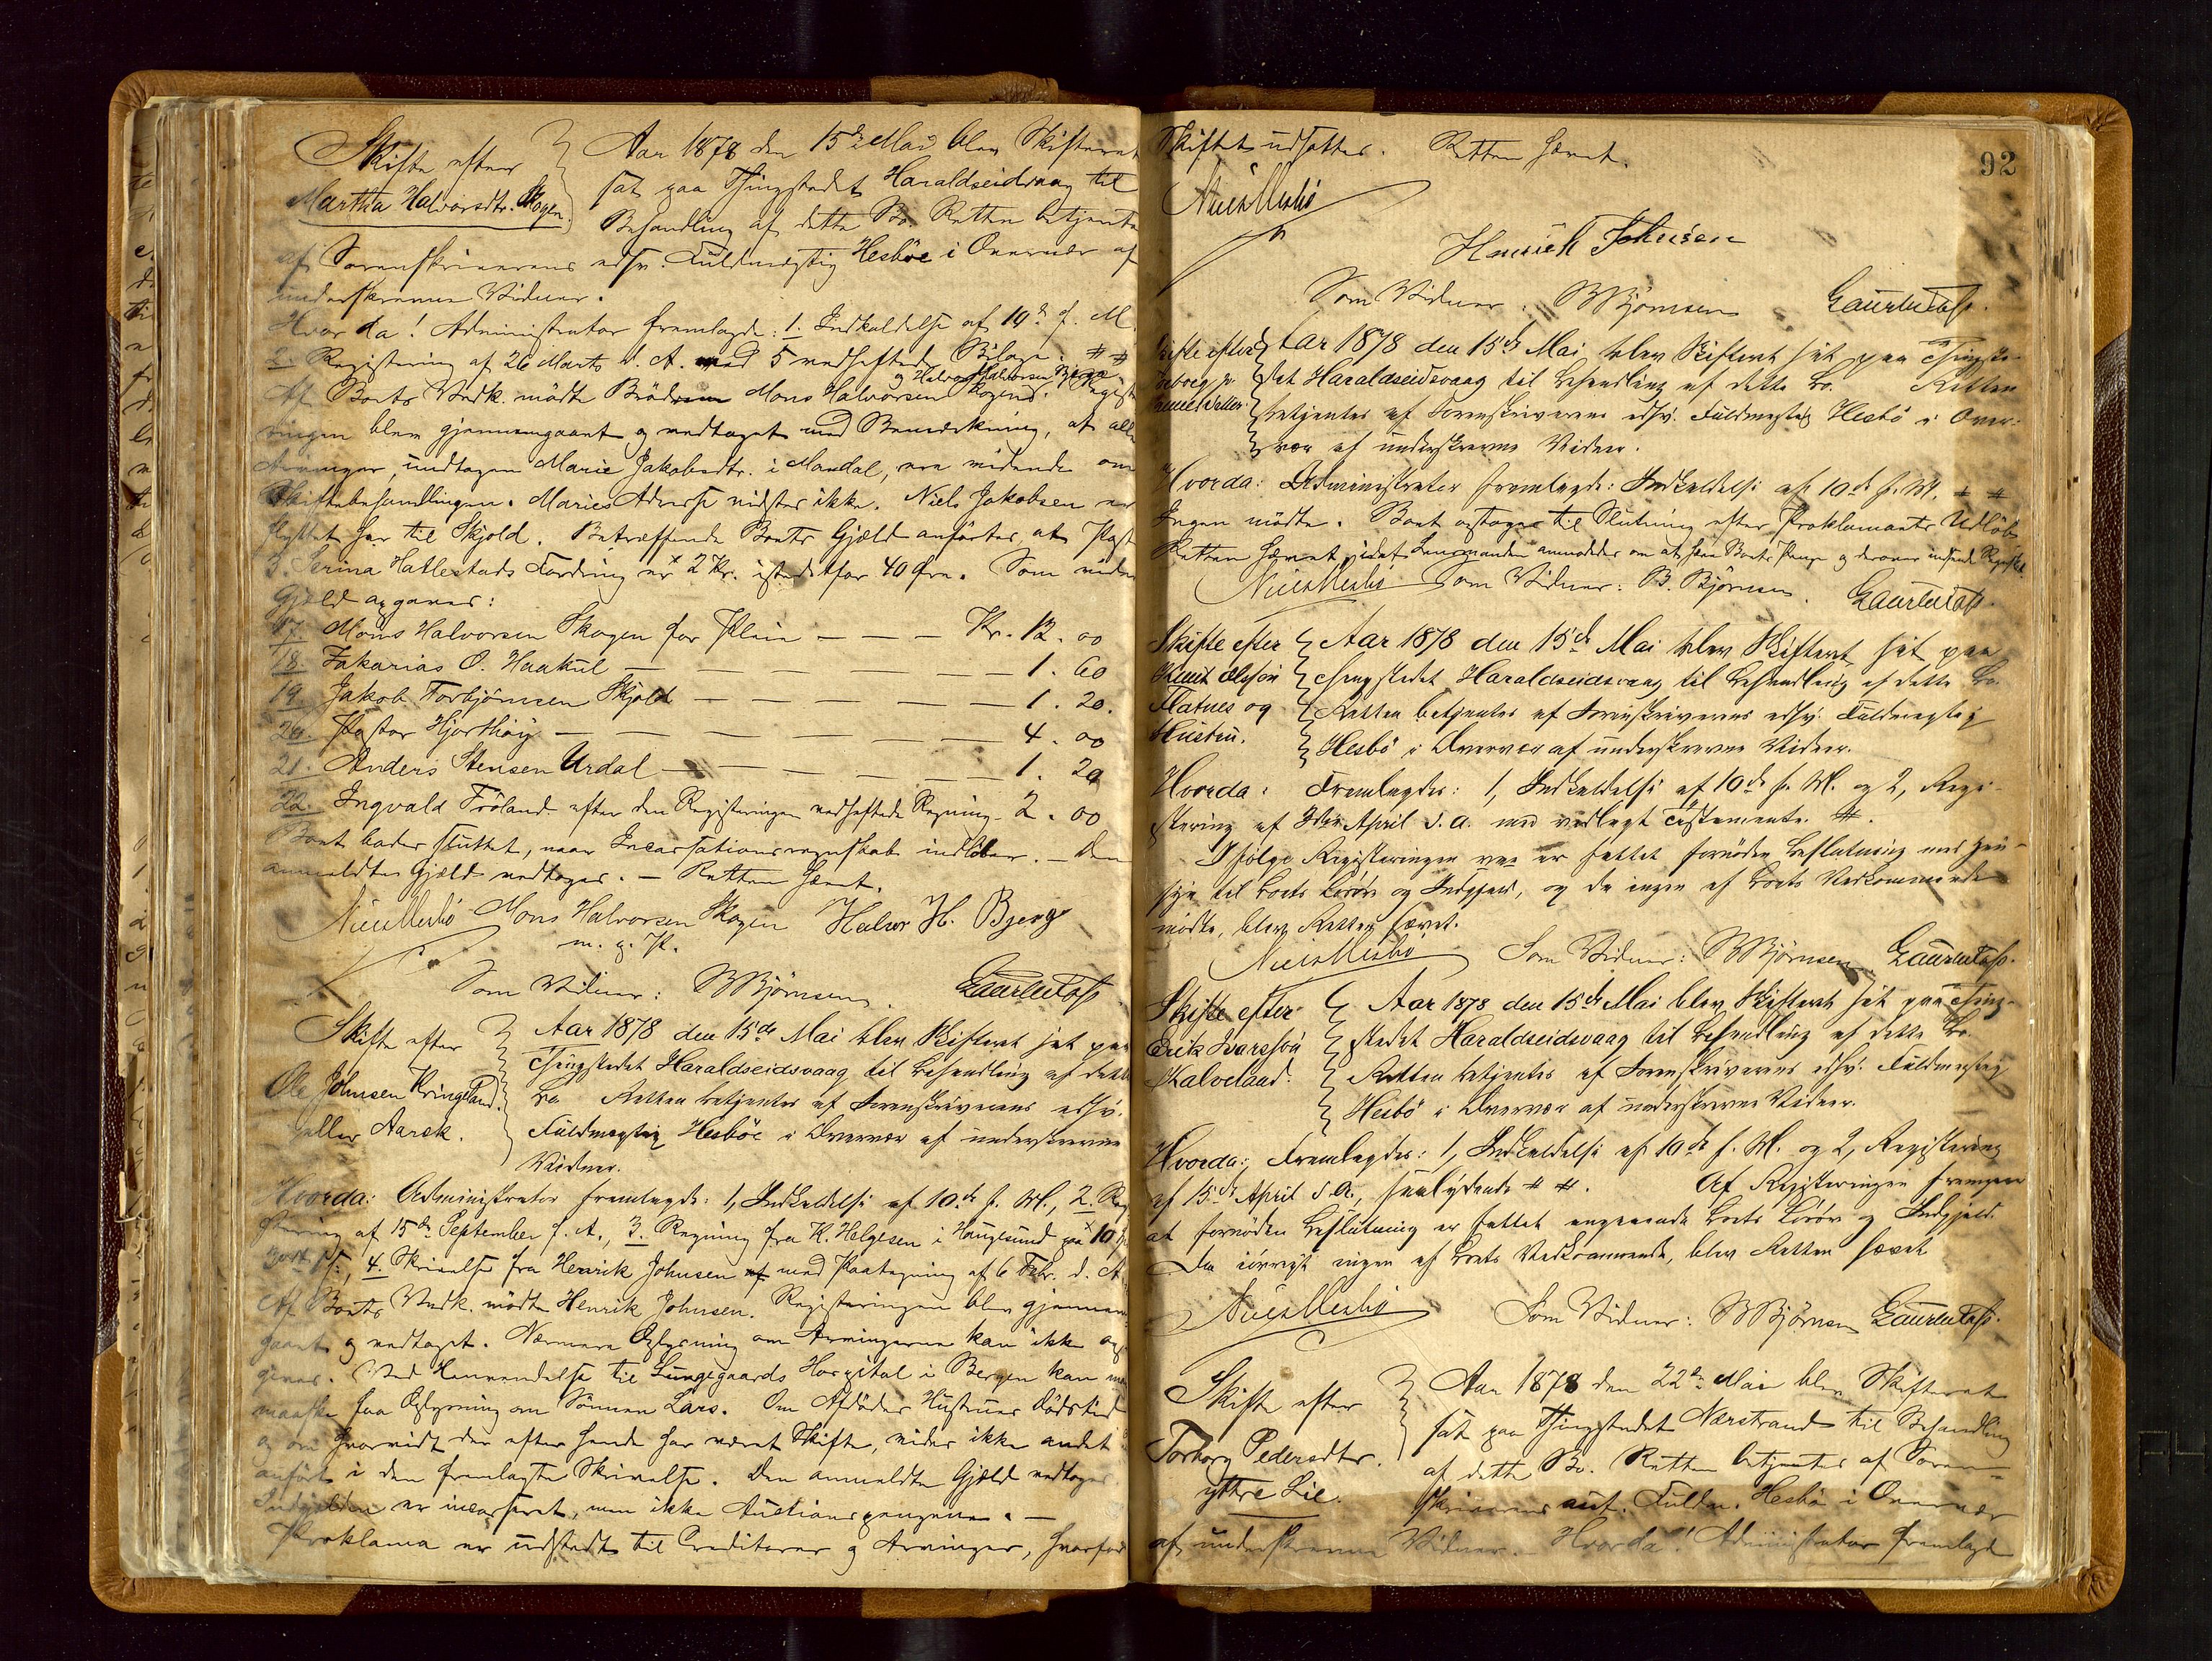 Skifte efter
Martha Halvorsdtr. Skogen.
Aar 1878 den 15de Mai blev Skifteret
sat paa Thingstedet Haraldseidvaag til
Behandling af dette Bo. Retten betjentes
af Sorenskriverens edsv. Fuldmægtig Hesböe i Overvær af
underskrevne Vidner.
Hvor da! Administrator fremlagde: 1. Indkaldelse af 10de f. M.
2. Registering af 26 Marts d. A. med 5 vedheftede Bilage. ##
og Halvor Halvorsen Bjerge
Af Boets Vedk. mödte Brödrene Mons Halvorsen Skogen. Regist
ringen blev gjennemgaaet og vedtaget med Bemærkning, at alle
Arvinger, undtagen Marie Jakobsdtr. i Mandal, ere vidende om
Skiftebehandlingen. Maries Adresse vidstes ikke. Niels Jakobsen er
flyttet her til Skjold. Betræffende Boets Gjæld anförtes, at Post
3. Serina Hatlestads Fordring er 2 Kr. istedetfor 40 Öre. Som videre
Gjæld opgaves:
17. Mons Halvorsen Skogen for Pleie — — — Kr. 12.00
18. Zakarias O. Haakul — — — — — 1.60
19. Jakob Torbjörnsen Skjold — — — — — 1.20.
20. Pastor Hjorthöy — — — — — 4.00
21. Anders Stensen Urdal — — — — — 1.20
22. Ingvald Fröland efter den Registeringen vedheftede Regning 2.00
Boet bades sluttet, naar Incassationsregnskab indlöber. — Den
anmeldte Gjæld vedtoges. — Retten hævet.
Niels Hesbö Mons Halvorsen Skogen Halvor H. Bjerge
m. p. P.
Som Vidner: B Björnsen.
Skifte efter
Ole Johnsen Kringeland
eller Aarek.
Aar 1878 den 15de Mai blev Skifteret sat paa
Thingstedet Haraldseidsvaag til Behandling af dette
Bo. Retten betjentes af Sorenskriverens edsv.
Fuldmægtig Hesböe i Overvær af underskrevne
Vidner.
Hvorda: Administrator fremlagde: 1, Indkaldelse af 10de f. M., 2. Reg
istering af 15de September f. A., 3. Regning fra K. Helgesen i Haugesund paa 10
4. Skrivelse fra Henrik Johnsen af med Paategning af 6 Febr. d. A.
Af Boets Vedk. mödte Henrik Johnsen. Registeringen blev gjennem
gaaet og vedtaget. Nærmere Oplysning om Arvingerne kan ikke op
gives. Ved Henvendelse til Lungegaards Hospital i Bergen kan man
maaske faa Oplysning om Sönnen Lars. Om Afdödes Hustrues Dödstid
og om hvorvidt der efter hende har været Skifte, vides ikke andet
anfört i den fremlagte Skrivelse. Den anmeldte Gjæld vedtoges
Indgjælden er incasseret, men ikke Auctionspengene. —
Proklama er udstedt til Creditorer og Arvinger, hvorfor
92
Skiftet udsattes. Retten hævet.
Niels Hesbö
Henrich Johnsen
Som Vidner: B Björnsen
Skifte efter
Aar 1878 den 15de Mai blev Skifteret sat paa Thingste-
det Haraldseidsvaag til Behandling af dette Bo. Retten
betjentes af Sorenskriverens edsv. Fuldmægtig Hesbö i Over-
vær af underskrevne Vidner.
Hvorda: Administrator fremlagde: Indkaldelse af 10de f. M. # #
Ingen mödte. Boet optoges til Slutning efter Proklamaets Udlöb
Retten hævet, idet Lensmanden anmodedes om at hæve Boets Penge og derover indsende Regnskab.
Niels Hesbö Som Vidner: B. Björnsen.
Skifte efter
Knut Olsson
Flatnes og
Hustru.
Aar 1878 den 15de Mai blev Skifteret sat paa
Thingstedet Haraldseidsvaag til Behandling af dette Bo.
Retten betjentes af Sorenskriverens edsv. Fuldmægtig
Hesbö i Overvær af underskrevne Vidner.
Hvorda: Fremlagdes: 1, Indkaldelse af 10de f. M. og 2, Regi-
stering af April d. A. med vedlagt Testamente. #.
Ifölge Registeringen er fattet fornöden Beslutning med Hen-
syn til Boets Lösöre og Indgjæld, og da ingen af Boets Vedkommende
mödte, blev Retten hævet.
Niels Hesbö Som Vidner: B Björnsen
Skifte efter
Erik Ivarsson
Kalveland.
Aar 1878 den 15de Mai blev Skifteret sat paa Thing-
stedet Haraldseidsvaag til Behandling af dette Bo.
Retten betjentes af Sorenskriverens edsv. Fuldmægtig
Hesbö i Overvær af underskrevne Vidner.
Hvorda: Fremlagdes: 1, Indkaldelse af 10de f. M. og 2, Registering
af 15de April d. A., saalydende # #. Af Registeringen fremgaar
at fornöden Beslutning er fattet angaaende Boets Lösöre og Indgjæld.
Da iövrigt ingen af Boets Vedkommende, blev Retten hævet
Niels Hesbö Som Vidner: B Björnsen
Skifte efter
Torborg Pedersdtr.
yttre Lie.
Aar 1878 den 22de Mai blev Skifteret
sat paa Thingstedet Nærstrand til Behandling
af dette Bo. Retten betjentes af Soren-
skriverens aut. Fuldm. Hesbö i Overvær
af underskrevne Vidner. Hvorda! Administrator fremlagde